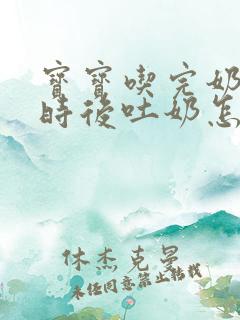 寶寶喫完奶
時後吐奶怎
休杰克曼
未经同意禁止转载